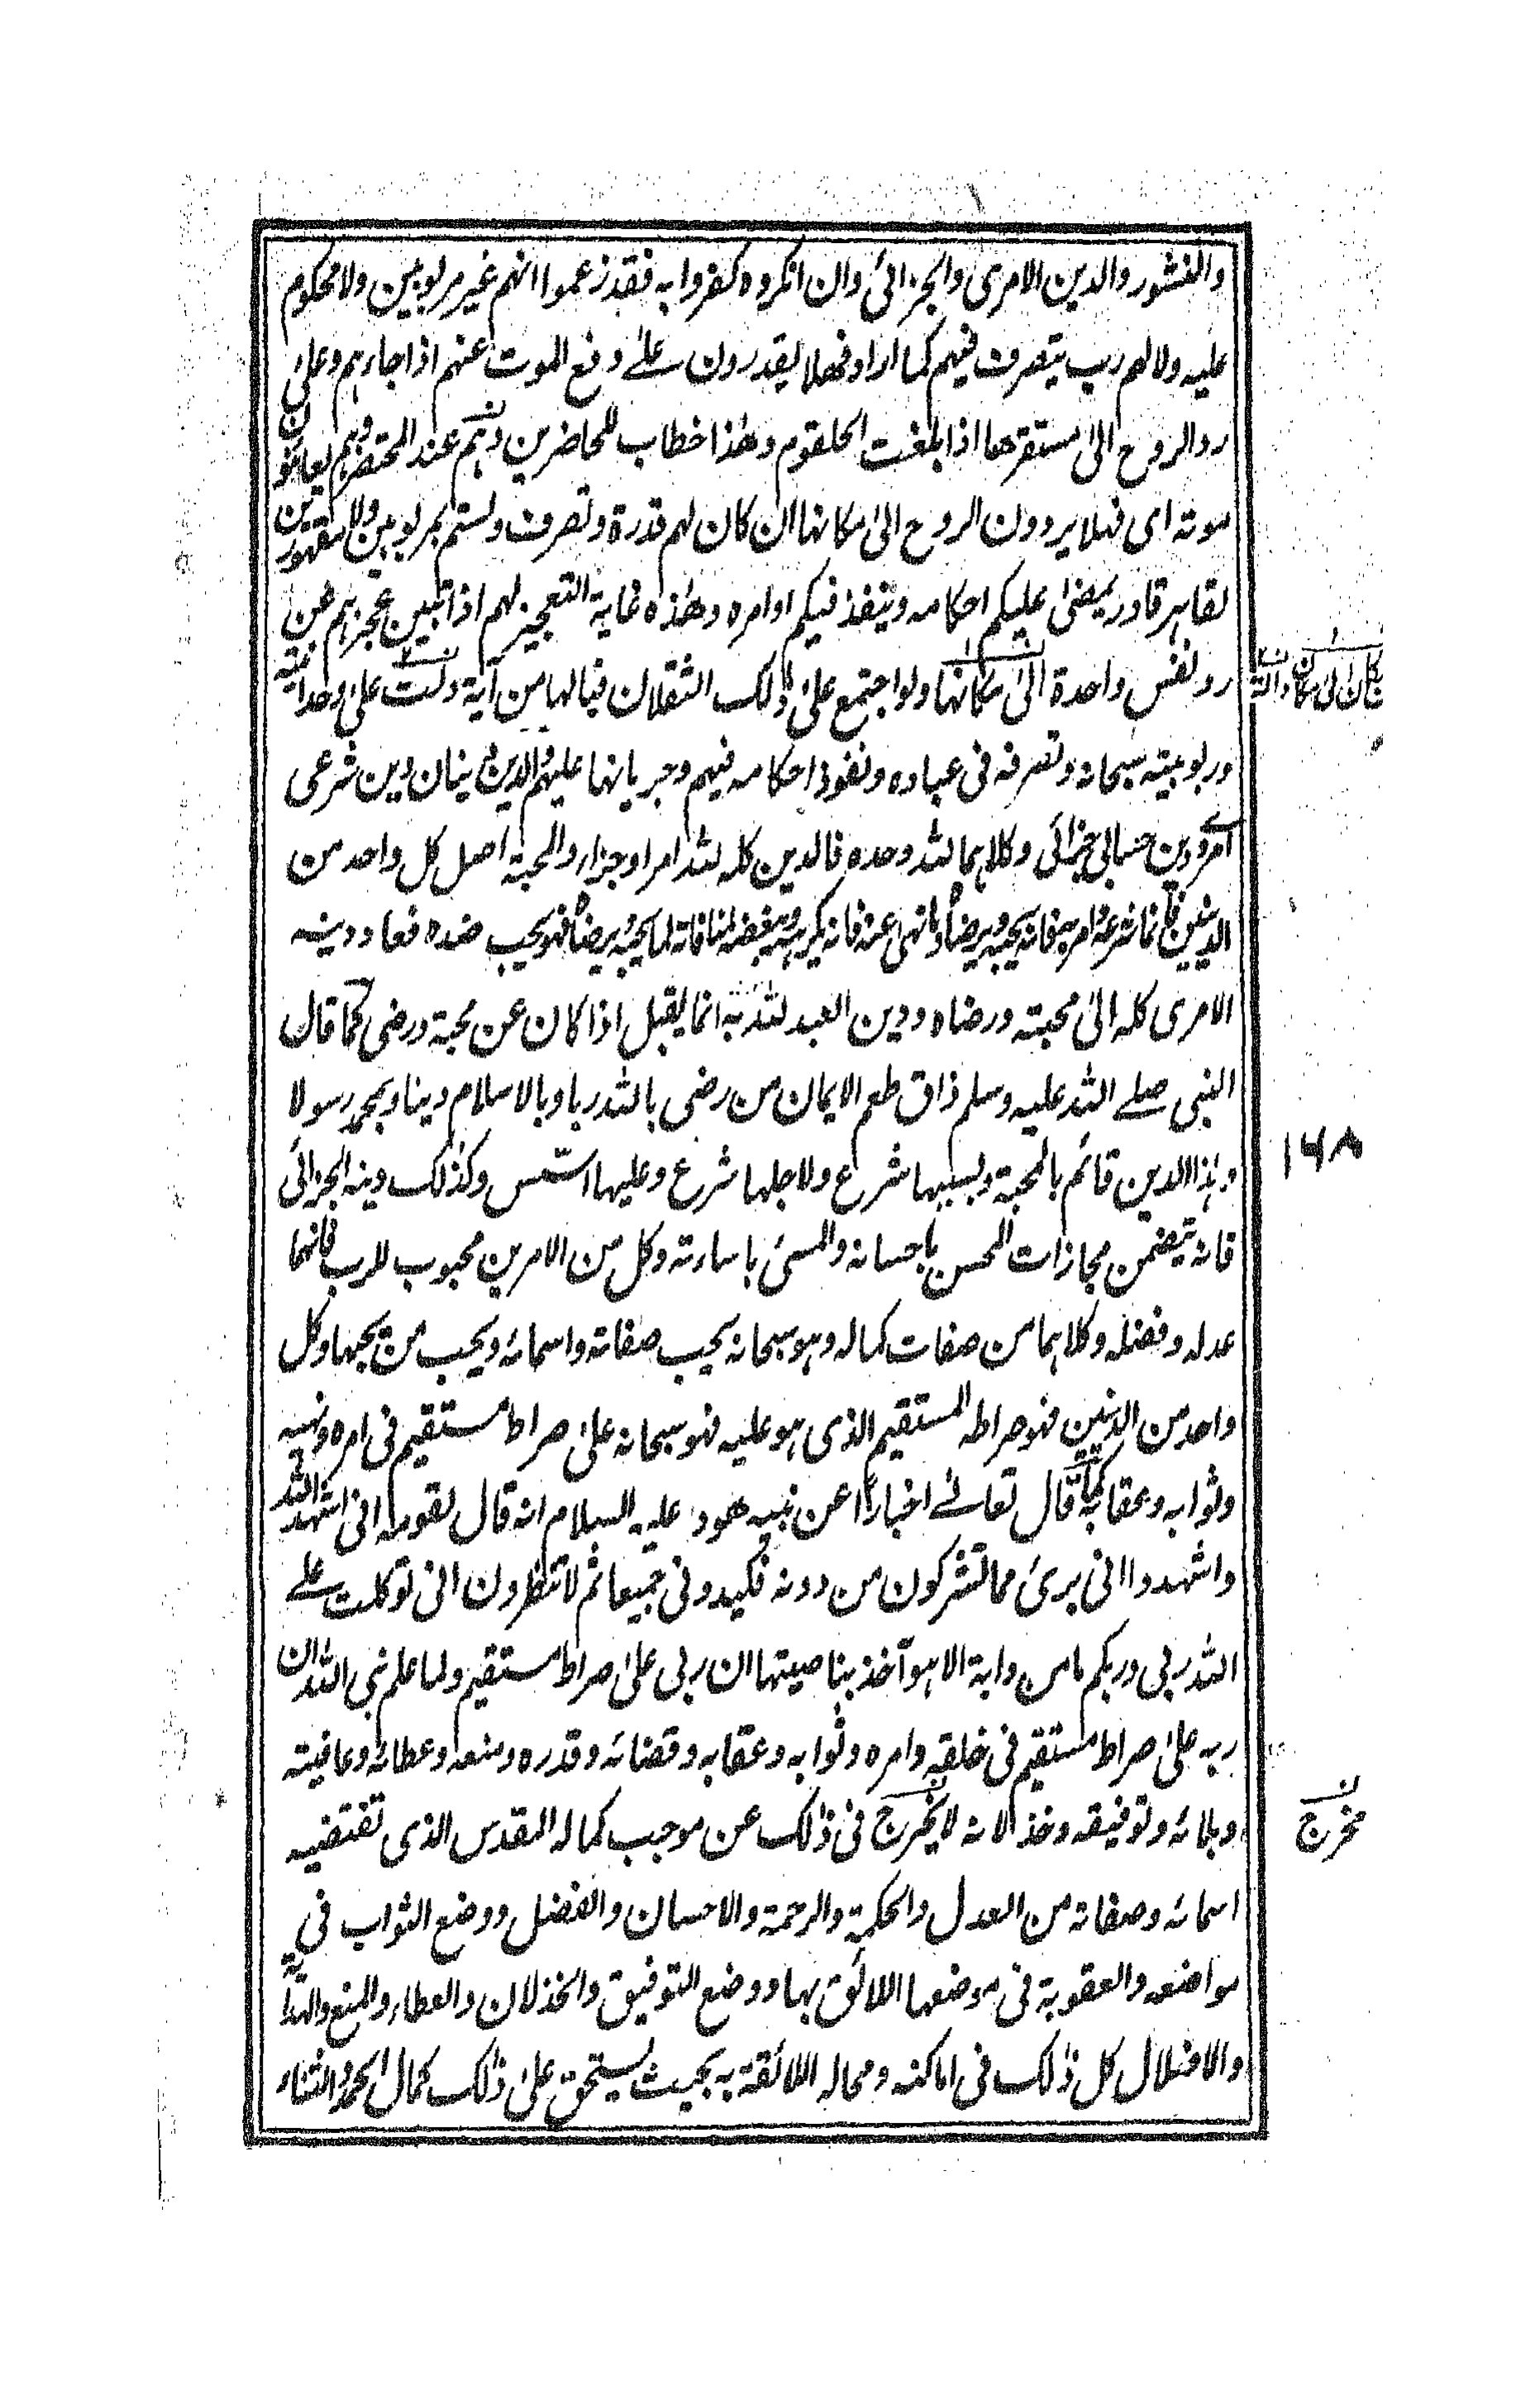 والنشور والدين الامرى والجزائى وان انكروه كفروا به فقد زعموا انهم غير مربوبين ولا محكوم
عليه ولا لهم رب يتصرف فيهم كما اراد فهلا يقدرون على دفع الموت عنهم اذا جاءهم وعلى
رد الروح الى مستقرها اذا بلغت الحلقوم وهذا خطاب للحاضرين وهم عند المحتضر وهم يعاينون
موته اى فهلا يردون الروح الى مكانها ان كان لهم قدرة وتصرف ولستم بمربوبين ولا مقهورين
لقاهر قادر يمضى عليكم احكامه وينفذ فيكم اوامره وهذه غاية التعجيز لهم اذا تبين عجزهم عن
رد نفس واحدة الى مكانها ولو اجتمع على ذلك الثقلان فيا لها من آية دلت على وحدانيته
وربوبيته سبحانه وتصرفه فى عباده ونفوذ احكامه فيهم وجريانها عليهم والدين دينان دين شرعى
امرى ودين حسابى جزائى وكلاهما لله وحده فالدين كله لله امرا وجزاء والمحبة اصل كل واحد من
الدينين فان ما شرعه وامر به فانه يحبه ويرضاه وما نهى عنه فانه يكرهه ويبغضه لمنافاته لما يحبه ويرضاه فهو يحب ضده فعاد دينه
الامرى كله الى محبته ورضاه ودين العبد لله به انما يقبل اذا كان عن محبة ورضى كما قال
النبى صلے الله عليه وسلم ذاق طعم الايمان من رضى بالله ربا وبالاسلام دينا وبمحمد رسولا
وهذا الدين قائم بالمحبة وبسببها شرع ولاجلها شرع وعليها اسّس وكذلك دينه الجزائى
فانه يتضمن مجازات المحسن باحسانه والمسئ باساءته وكل من الامرين محبوب للرب فانهما
عدله وفضله وكلاهما من صفات كماله وهو سبحانه يحب صفاته واسمائه ويحب من يحبها وكل
واحد من الدينين فهو صراطه المستقيم الذى هو عليه فهو سبحانه على صراط مستقيم فى امره ونهيه
وثوابه وعقابه كما قال تعالے اخبارا عن نبيه هود عليه السلام انه قال لقومه انى اشهد الله
واشهدوا انى برئ مما تشركون من دونه فكيدونى جميعا ثم لا تنظرون انى توكلت علے
الله ربى وربكم ما من دابة الا هو آخذ بناصيتها ان ربى على صراط مستقيم ولما علم نبى الله ان
ربه على صراط مستقيم فى خلقه وامره وثوابه وعقابه وقضائه وقدره ومنعه وعطائه وعافيته
وبلائه وتوفيقه وخذلانه لا يخرج فى ذلك عن موجب كماله المقدس الذى تقتضيه
اسمائه وصفاته من العدل والحكمة والرحمة والاحسان والفضل ووضع الثواب فى
مواضعه والعقوبة فى موضعها اللائق بها ووضع التوفيق والخذلان والعطاء والمنع والهداية
والاضلال كل ذلك فى اماكنه ومحاله اللائقة به بحيث يستحق على ذلك كمال الحمد والثناء
١٦٨
مخرج